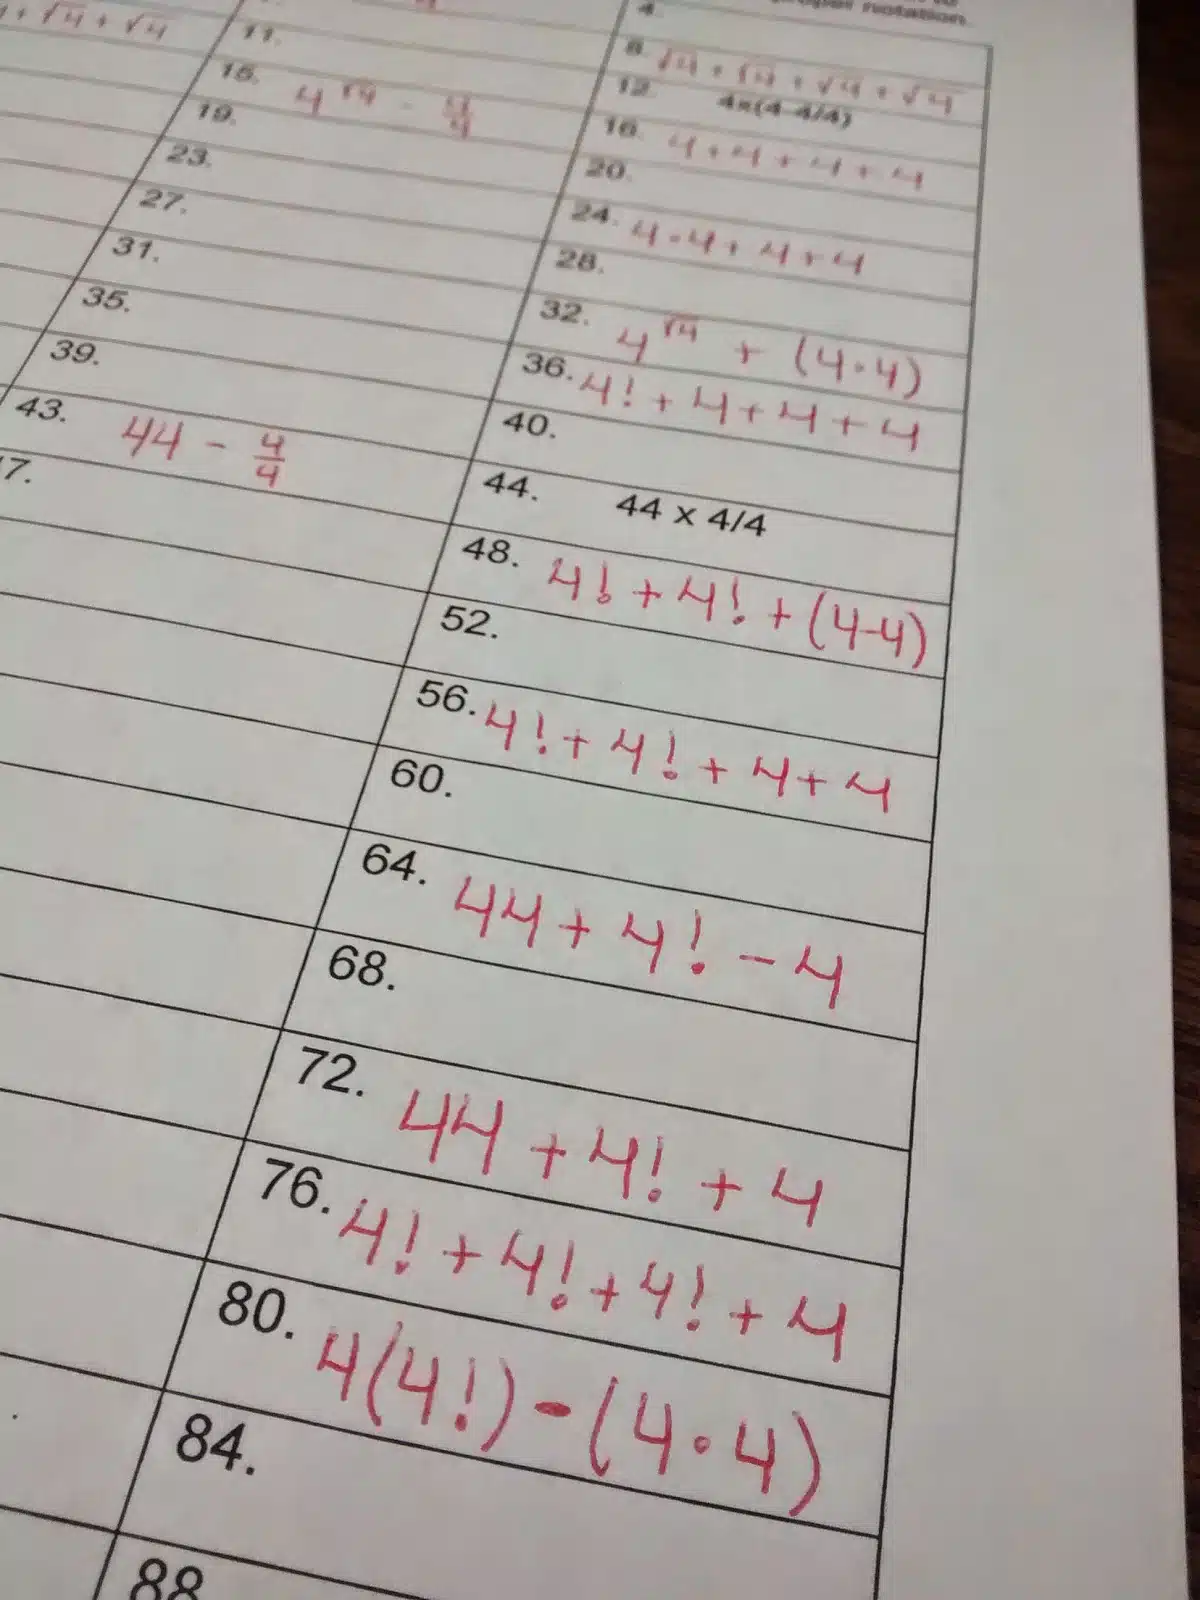 notation.
4.
+ √4 + √4
11.
8. √4 + √4 + √4 + √4
15. 4^√4 - 4/4
12. 4x(4-4/4)
19.
16. 4 + 4 + 4 + 4
23.
20.
27.
24. 4 · 4 + 4 + 4
31.
28.
35.
32. 4^√4 + (4·4)
39.
36. 4! + 4 + 4 + 4
43. 44 - 4/4
40.
7.
44. 44 x 4/4
48. 4! + 4! + (4-4)
52.
56. 4! + 4! + 4 + 4
60.
64. 44 + 4! - 4
68.
72. 44 + 4! + 4
76. 4! + 4! + 4! + 4
80. 4(4!) - (4·4)
84.
88